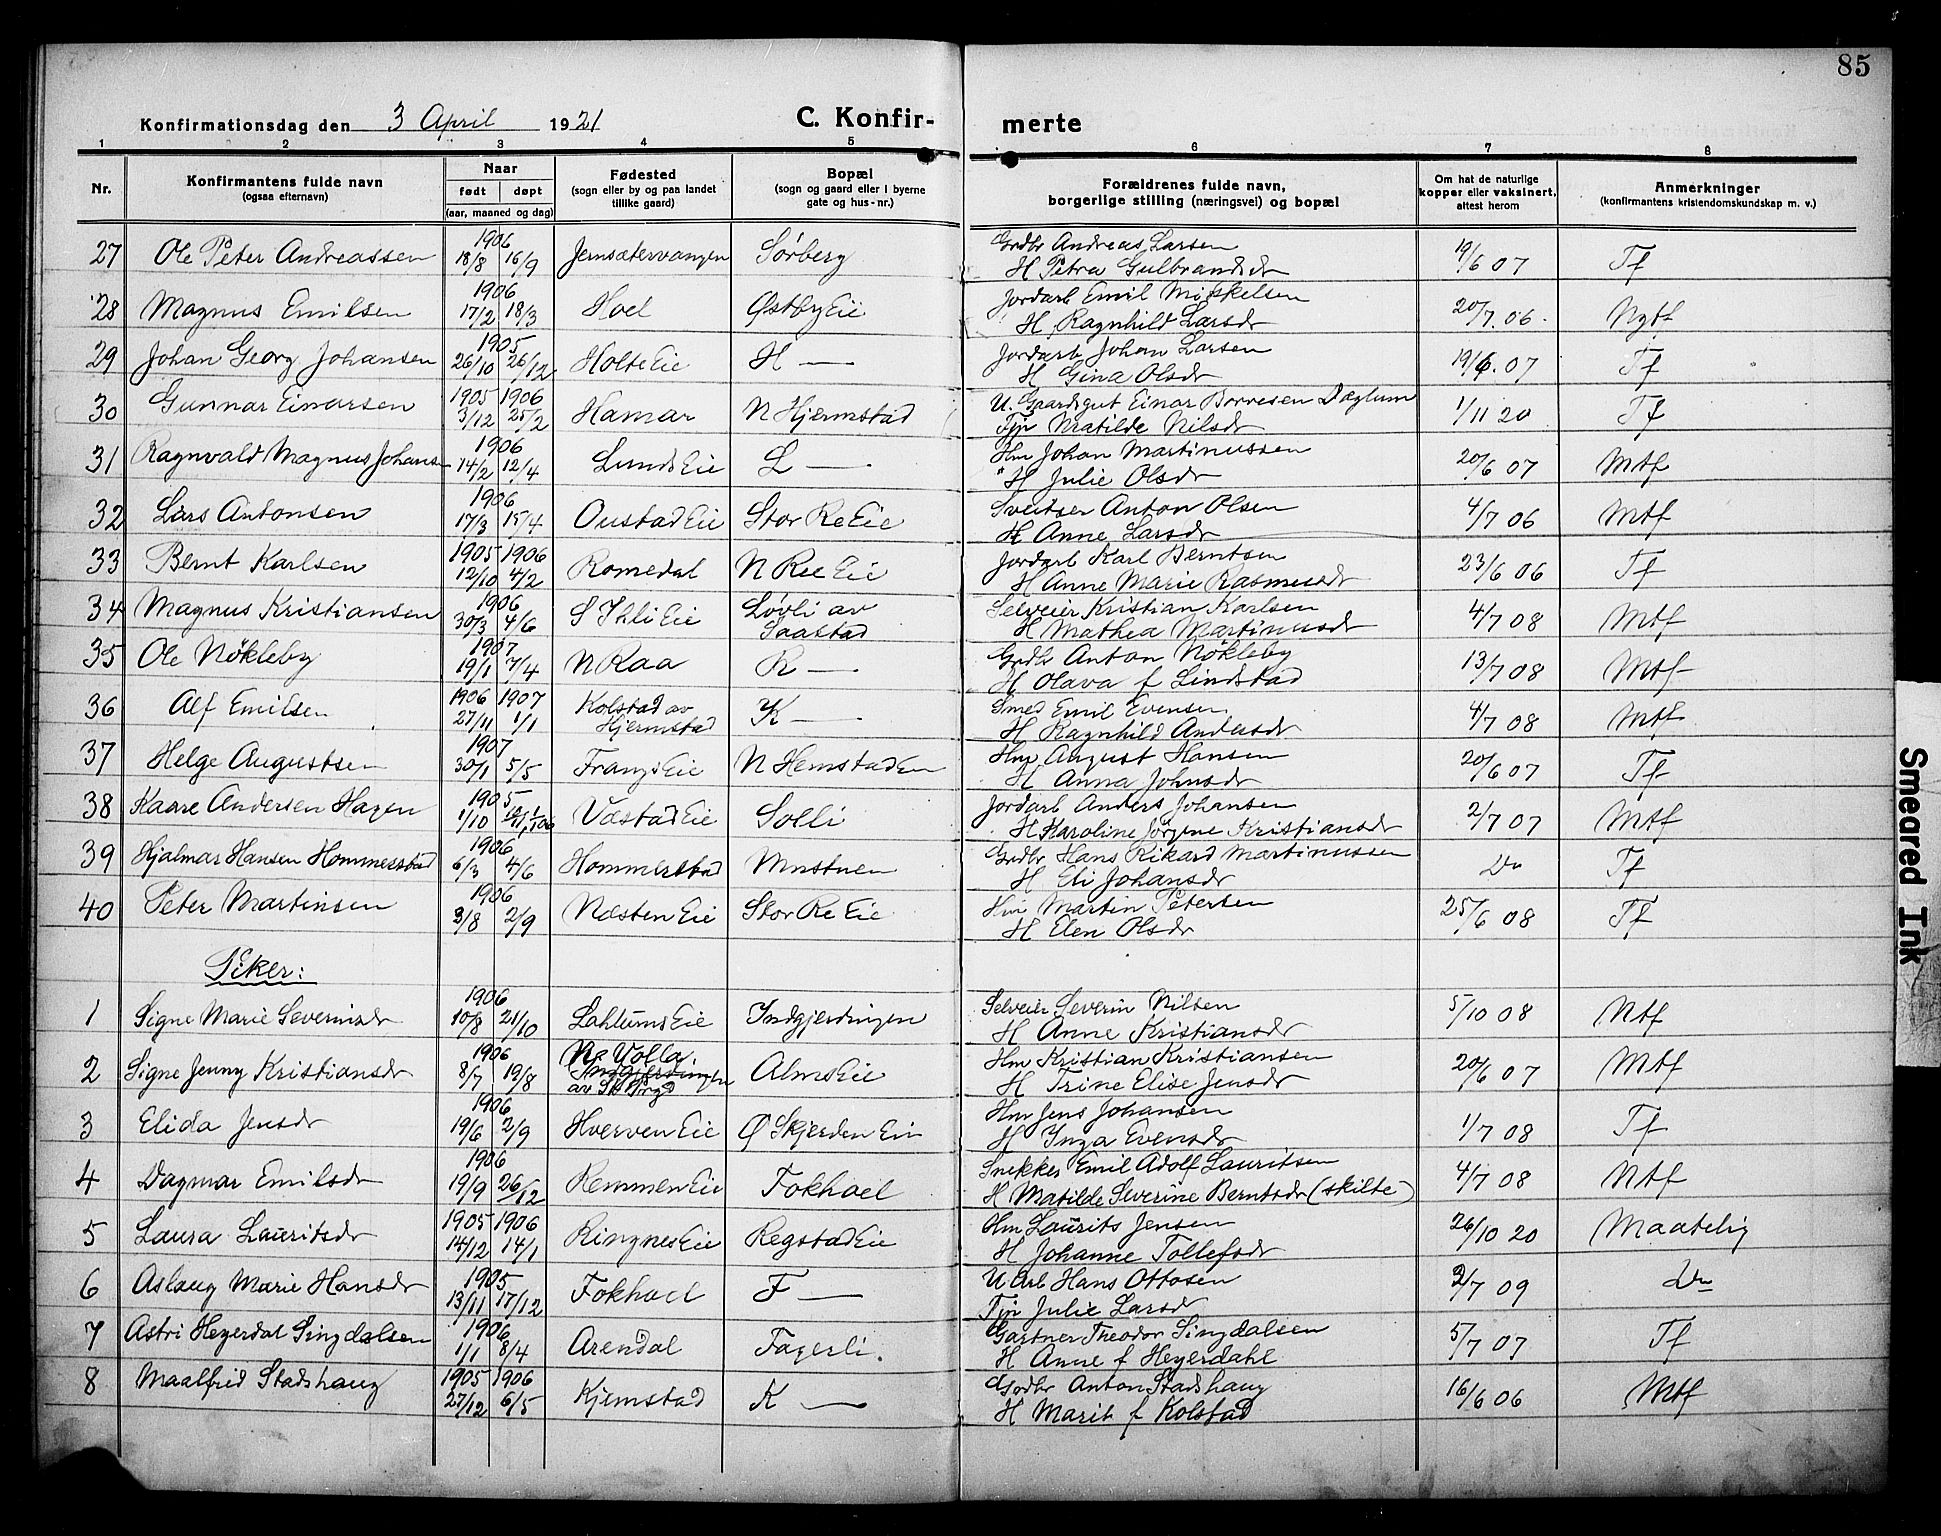 85
Konfirmationsdag den 3 April 1921
C. Konfir- merte
1 2 3 4 5 6 7 8
Nr.
Konfirmantens fulde navn
(ogsaa efternavn)
Naar
født døpt
(aar, maaned og dag)
Fødested
(sogn eller by og paa landet
tillike gaard)
Bopæl
(sogn og gaard eller i byerne
gate og hus-nr.)
Forældrenes fulde navn,
borgerlige stilling (næringsvei) og bopæl
Om hat de naturlige
kopper eller vaksinert,
attest herom
Anmerkninger
(konfirmantens kristendomskundskap m. v.)
1906 Grdbr Andreas Larsen
27 Ole Peter Andreassen 18/8 16/9 Jernsætervangen Sørberg H Petra Gulbrandsdr 19/6 07 Tf
1906 Jordarb Emil Mikkelsen
28 Magnus Emilsen 17/2 18/3 Hoel Østby Eie H Ragnhild Larsdr 20/7. 06. Ngtf
1905 Jordarb Johan Larsen
29 Johan Georg Johansen 26/10 26/12 Holte Eie H — H Gina Olsdr 19/6. 07 Tf
1905 1906 U. Gaardsgut Einar Borresen Dæglum
30 Gunnar Einarsen 3/12 25/2 Hamar N Hjermstad Tjp Matilde Nilsdr 1/11 20 Tf
1906 Hm Johan Martinussen
31 Ragnvald Magnus Johans 14/2 12/4 Lunds Eie L — H Julie Olsdr 20/6 07 Mtf
1906 Sveitser Anton Olsen
32 Lars Antonsen 17/3 15/4 Oustad Eie Stor Re Eie H Anne Larsdr 4/7 06 Mtf
1905 1906 Jordarb Karl Berntsen
33 Bernt Karlsen 12/10 4/2 Romedal N Ree Eie H Anne Marie Rasmusdr 23/6 06 Tf
1906 Selveier Kristian Karlsen
34 Magnus Kristiansen 30/3 4/6 S Ihli Eie Løvli av Saastad H Mathea Martinusdr 4/7 08 Mtf
1907 Grdbr Anton Nøkleby
35 Ole Nøkleby 19/1 7/4 N Raa R — H Olava f Lindstad 13/7 08 Mtf
1906 1907 Smed Emil Evensen
36 Alf Emilsen 27/11 1/1 Kolstad av Hjermstad K — H Ragnhild Andersdr 4/7 08 Mtf
1907 Hm August Hansen
37 Helge Augustsen 30/1 5/5 Frangs Eie N Hemstad En H Anna Johnsdr 20/6 07 Tf
1905 Jordarb Anders Johansen
38 Kaare Andersen Hagen 1/10 1/1 06 Væstad Eie Solli H Karoline Jørgine Kristiansdr 2/7 07 Mtf
1906 Grdbr Hans Rikard Martinussen
39 Hjalmar Hansen Hommerstad 6/3 4/6 Hommerstad Mostuen H Eli Johansdr Do Tf
1906 Hm Martin Petersen
40 Peter Martinsen 3/8 2/9 Næsten Eie Stor Re Eie H Elen Olsdr 25/6 08 Tf
Piker:
1906 Selveier Severin Nilsen
1 Signe Marie Severinsdr 10/8 21/10 Lahlums Eie Indgjerdingen H Anne Kristiansdr 5/10 08 Ntf
1906 N. Volla. Hm Kristian Kristiansen
2 Signe Jenny Kristiansdr 8/7 19/8 Indgjerdingen Alms Eie H Trine Elise Jensdr 20/6 07 Mtf
1906 Hm Jens Johansen
3 Elida Jensdr 19/6 2/9 Hverven Eie Ø Skjerden Eie H Inga Evensdr 1/7 08 Tf
1906 Snekker Emil Adolf Lauritsen
4 Dagmar Emilsdr 19/9 26/12 Remmen Eie Fokhoel H Matilde Severine Berntsdr (skilte) 4/7 08 Ntf
1905 1906 Hm Laurits Jensen
5 Laura Lauritsdr 14/12 14/1 Ringnes Eie Regstad Eie H Johanne Tollefsdr 26/10 20 Maatelig
1905 U Arb Hans Ottosen
6 Aslaug Marie Hansdr 13/11 17/12 Fokhoel F — Tjp Julie Larsdr 2/7 09 Do
1906 Gartner Theodor Singdalsen
7 Astri Heyerdal Singdalsen 1/1 8/4 Arendal Fagerli. H Anne f Heyerdahl 5/7 07 Tf
1905 1906 Grdbr Anton Stadshaug
8 Maalfrid Stadshaug 27/12 6/5 Kjemstad K — H Marit f Kolstad 16/6 06 Mtf
Smeared Ink